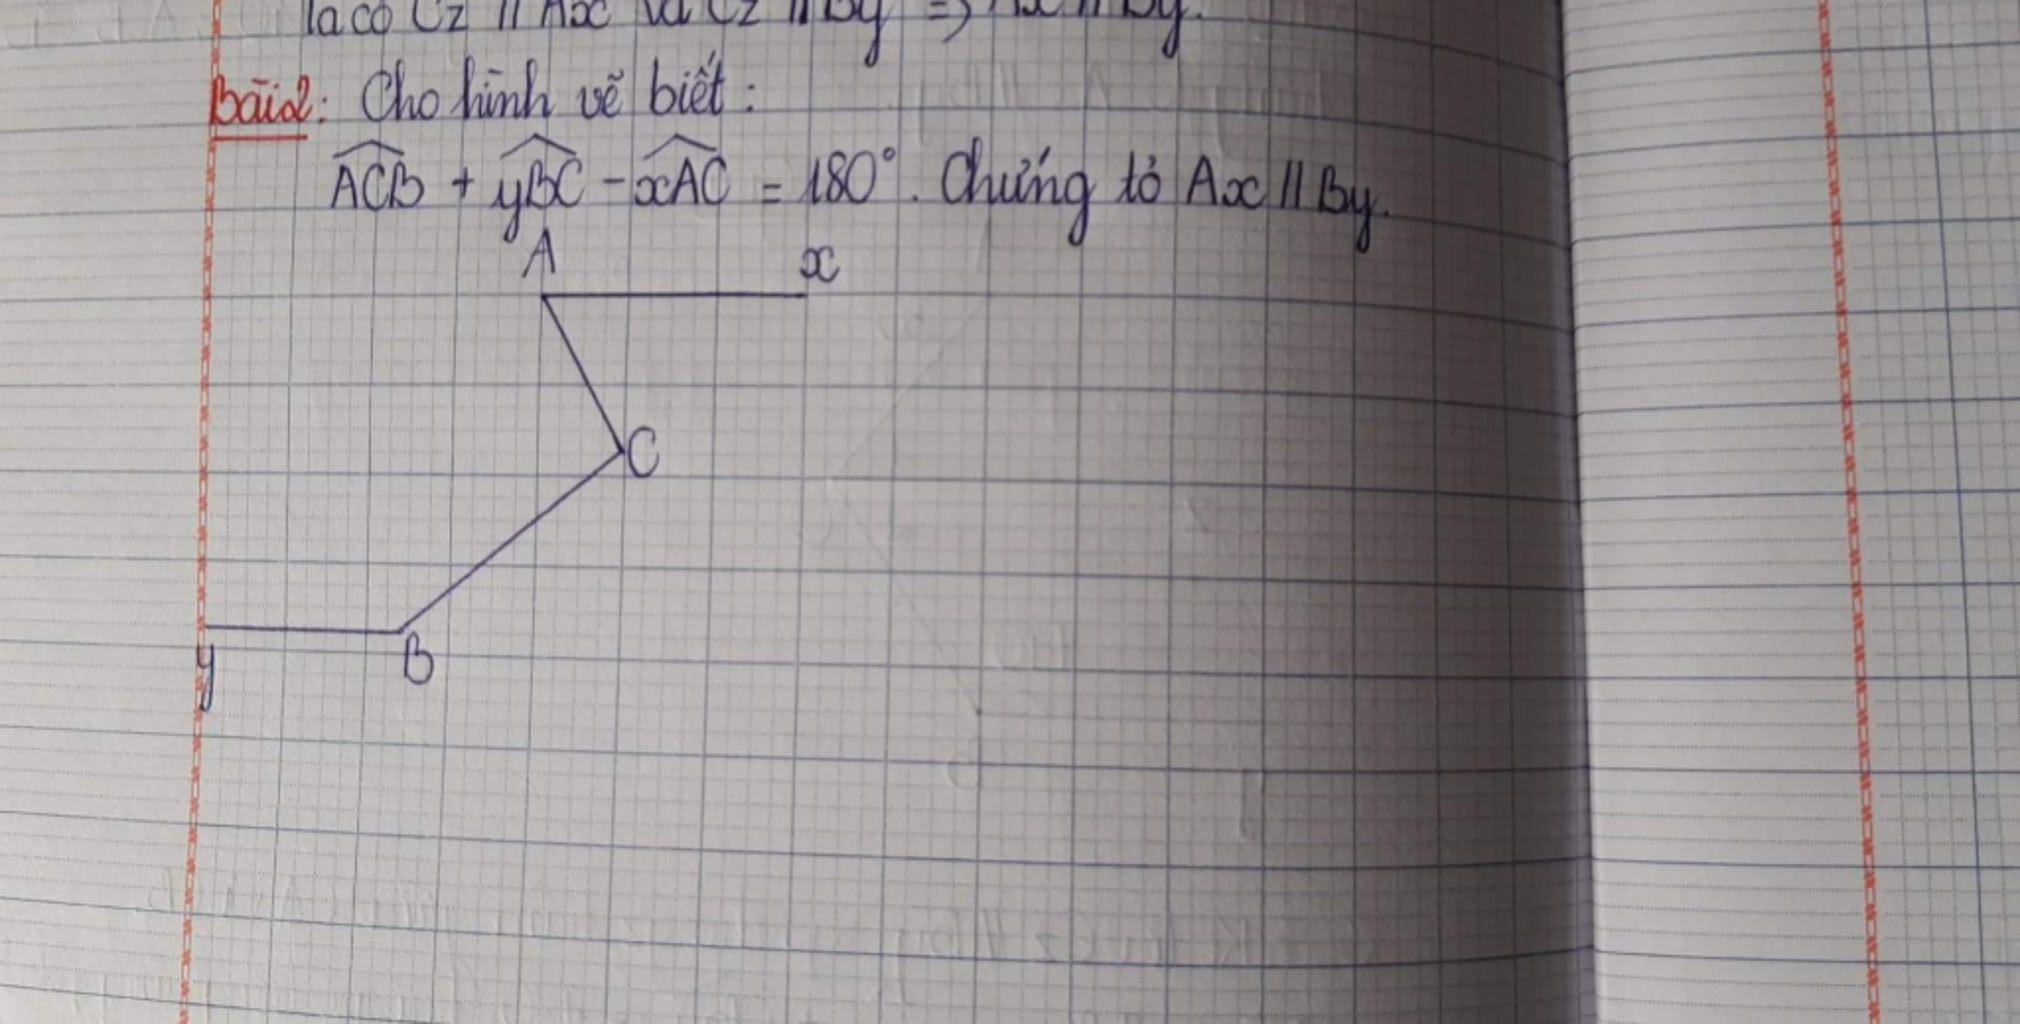 Ta có Cz // Ax và Cz // By => Ax // By.
Bài 2: Cho hình vẽ biết:
ACB + yBC - xAC = 180°. Chứng tỏ Ax // By.
A x
C
y B